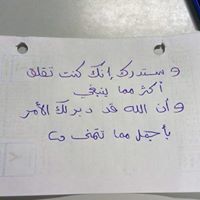 وستدرك إنك كنت تقلق
أكثر مما ينبغي
وأن الله قد دبر لك الأمر
بأجمل مما تتمنى